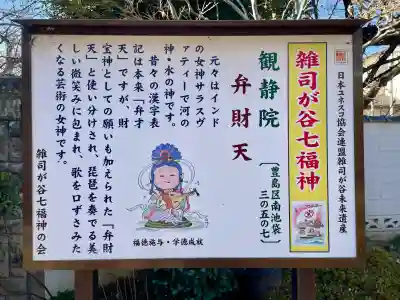 日本ユネスコ協会連盟雑司が谷未来遺産
雑司が谷七福神
観静院
弁財天
〔豊島区南池袋
三の五の七〕
元々はインド
の女神サラスヴ
ァティーで河の
神・水の神です。
昔々の漢字表
記は本来「弁才
天」ですが、財
宝神としての願いも加えられた「弁財
天」と使い分けされ、琵琶を奏でる美
しい微笑みに包まれ、歌を口ずさみた
くなる芸術の女神です。
雑司が谷七福神の会
福徳施与・学徳成就